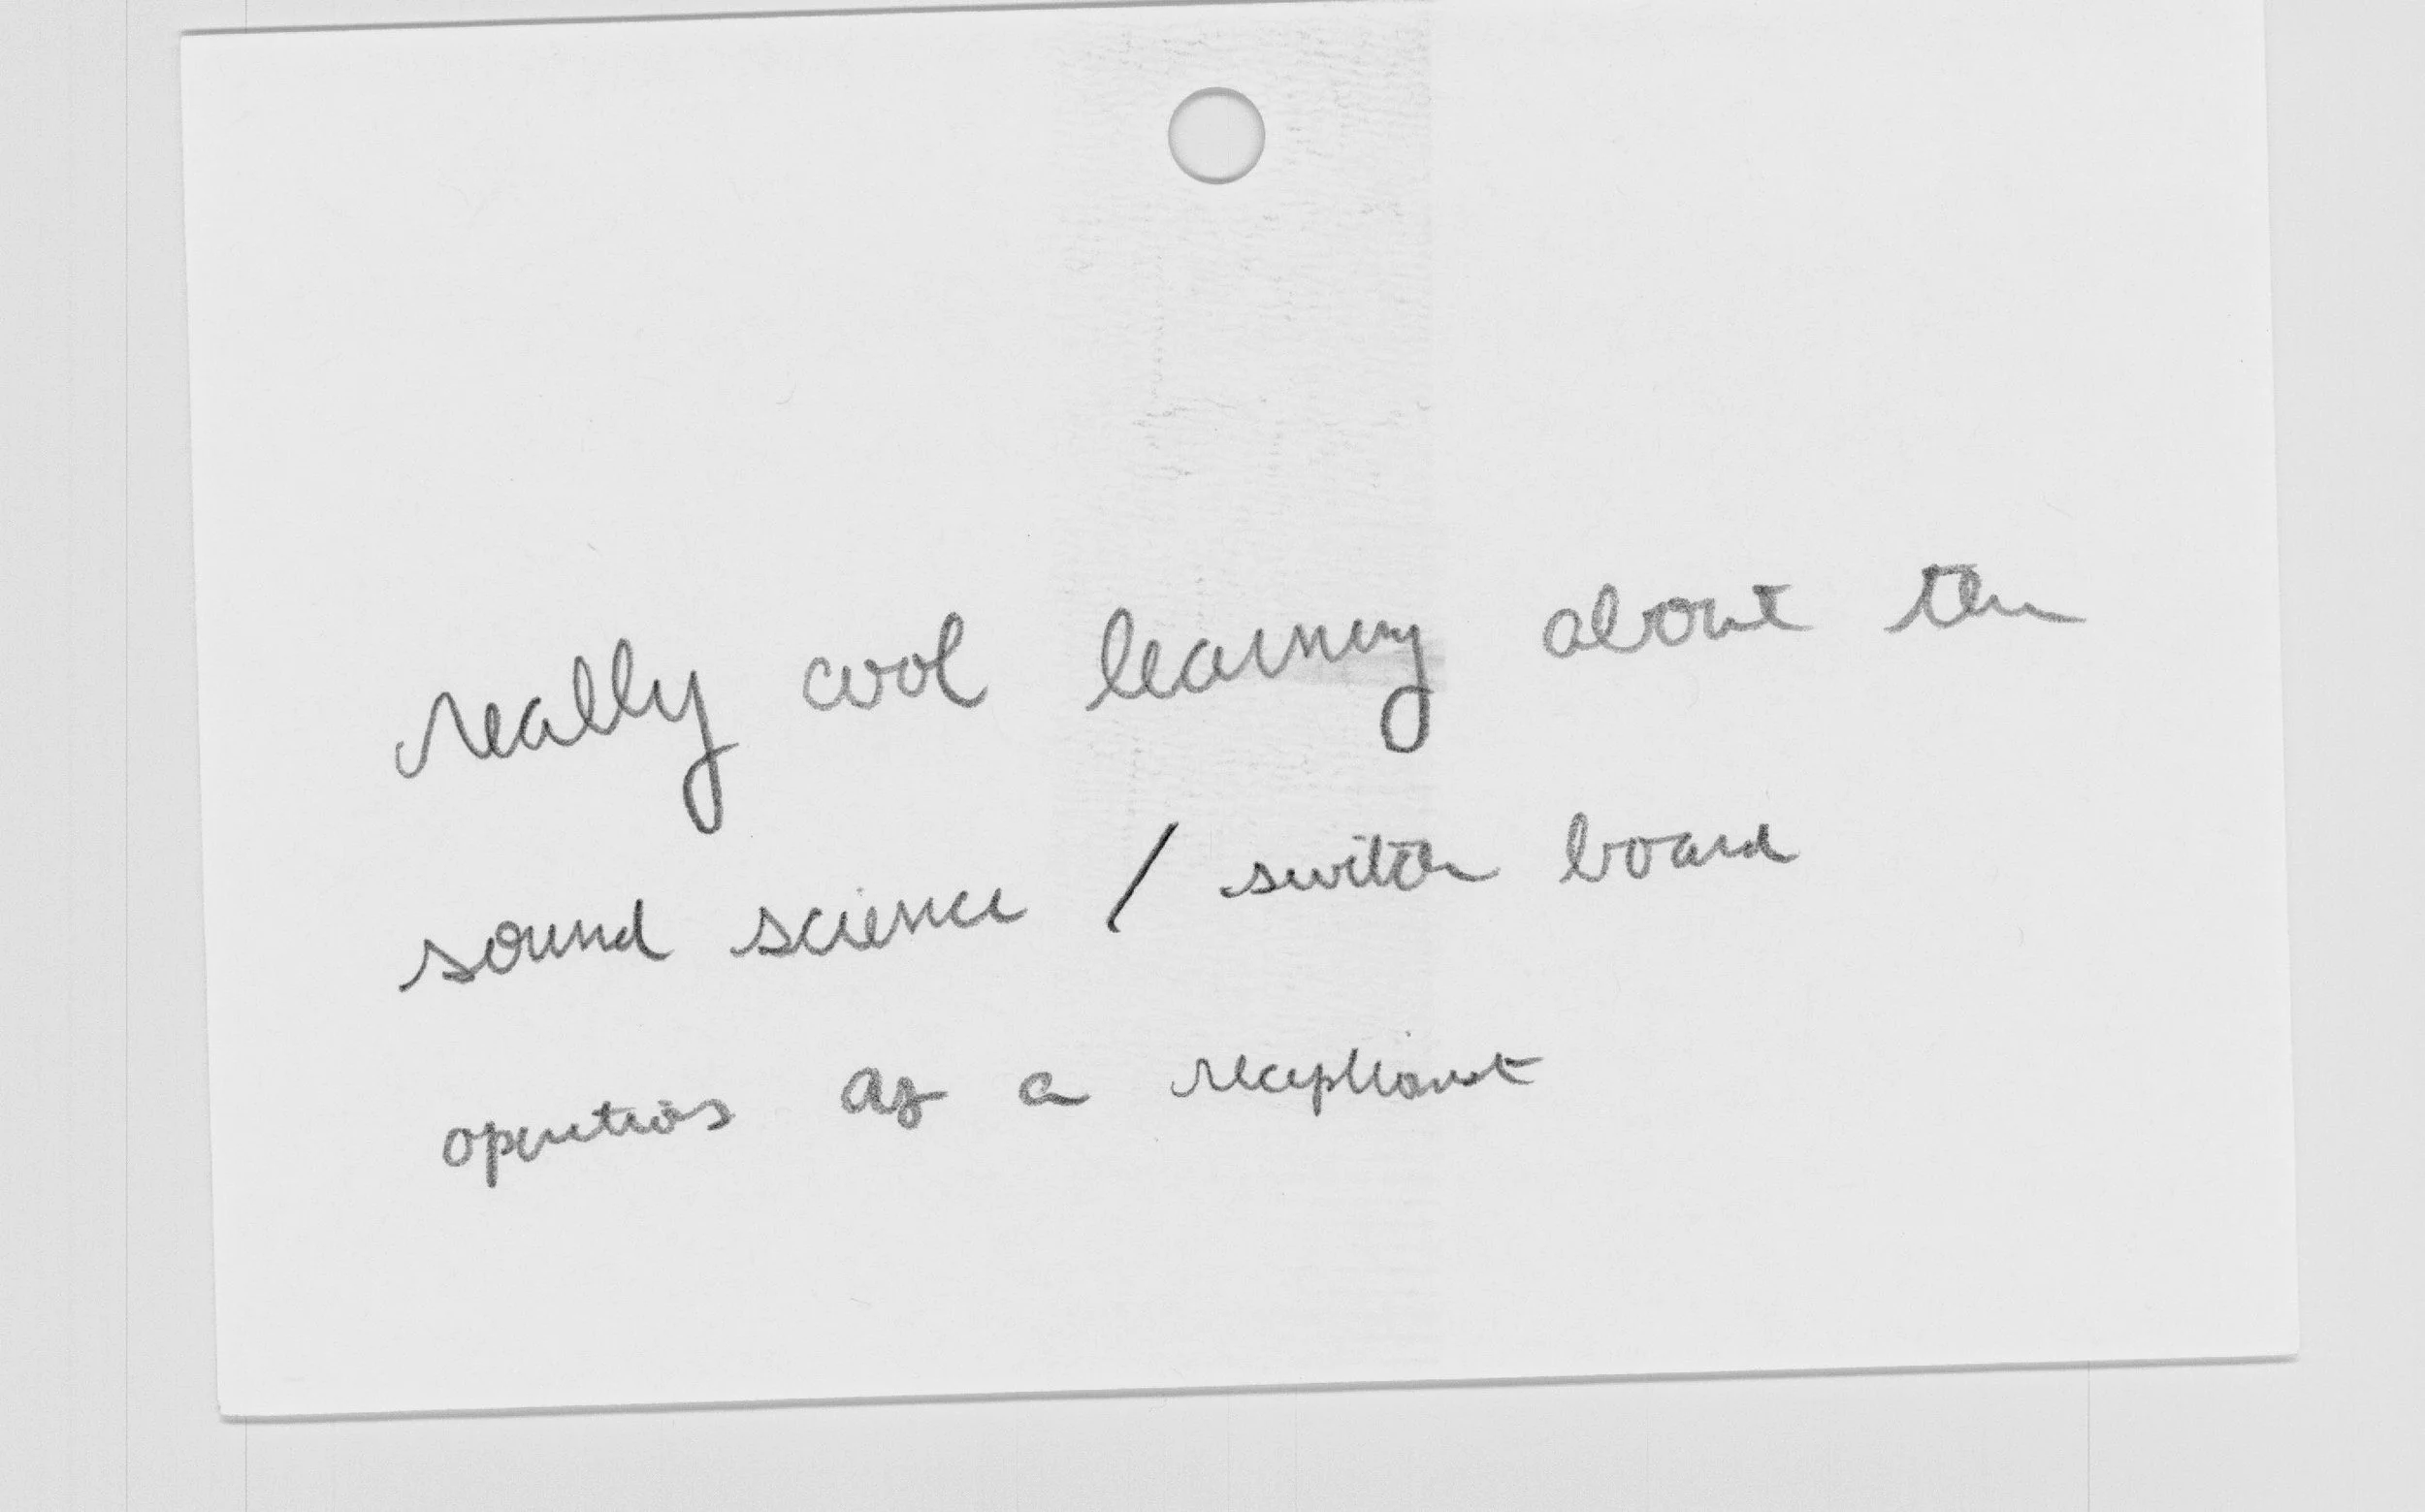 really cool learning about the
sound science / switch board
operations as a receptionist